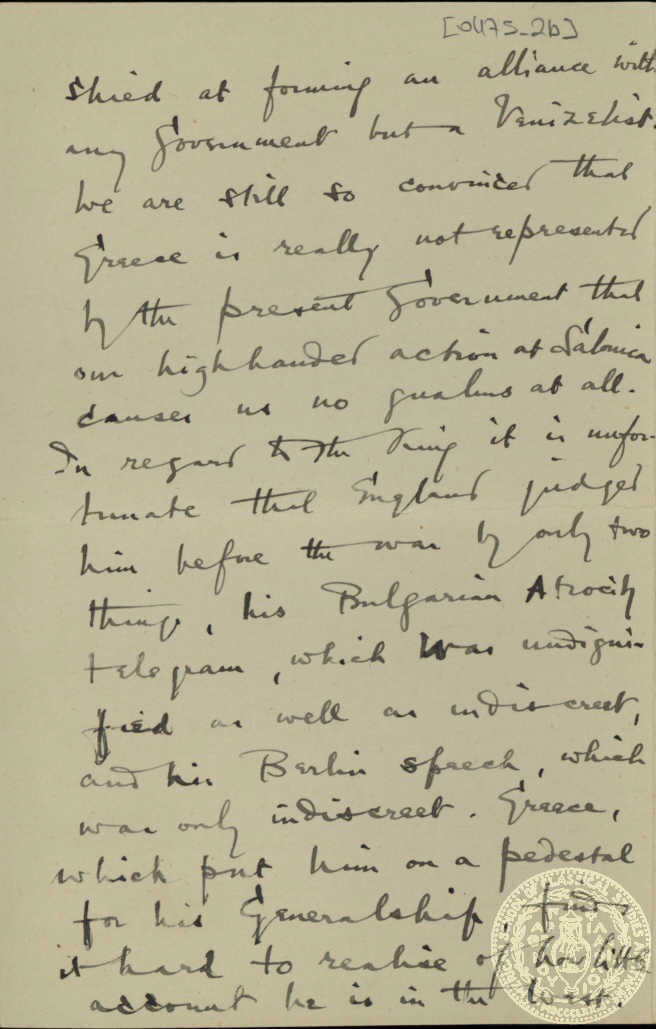 [0475_2b]
shied at forming an alliance with
any Government but a Venizelist.
We are still so convinced that
Greece is really not represented
by the present Government that
our highhanded action at Salonica
causes us no qualms at all.
In regard to the King it is unfor-
tunate that England judged
him before the war by only two
things, his Bulgarian Atrocity
telegram, which was undigni-
fied as well as indiscreet,
and his Berlin speech, which
was only indiscreet. Greece,
which put him on a pedestal
for his Generalship, finds
it hard to realise of how little
account he is in the West.